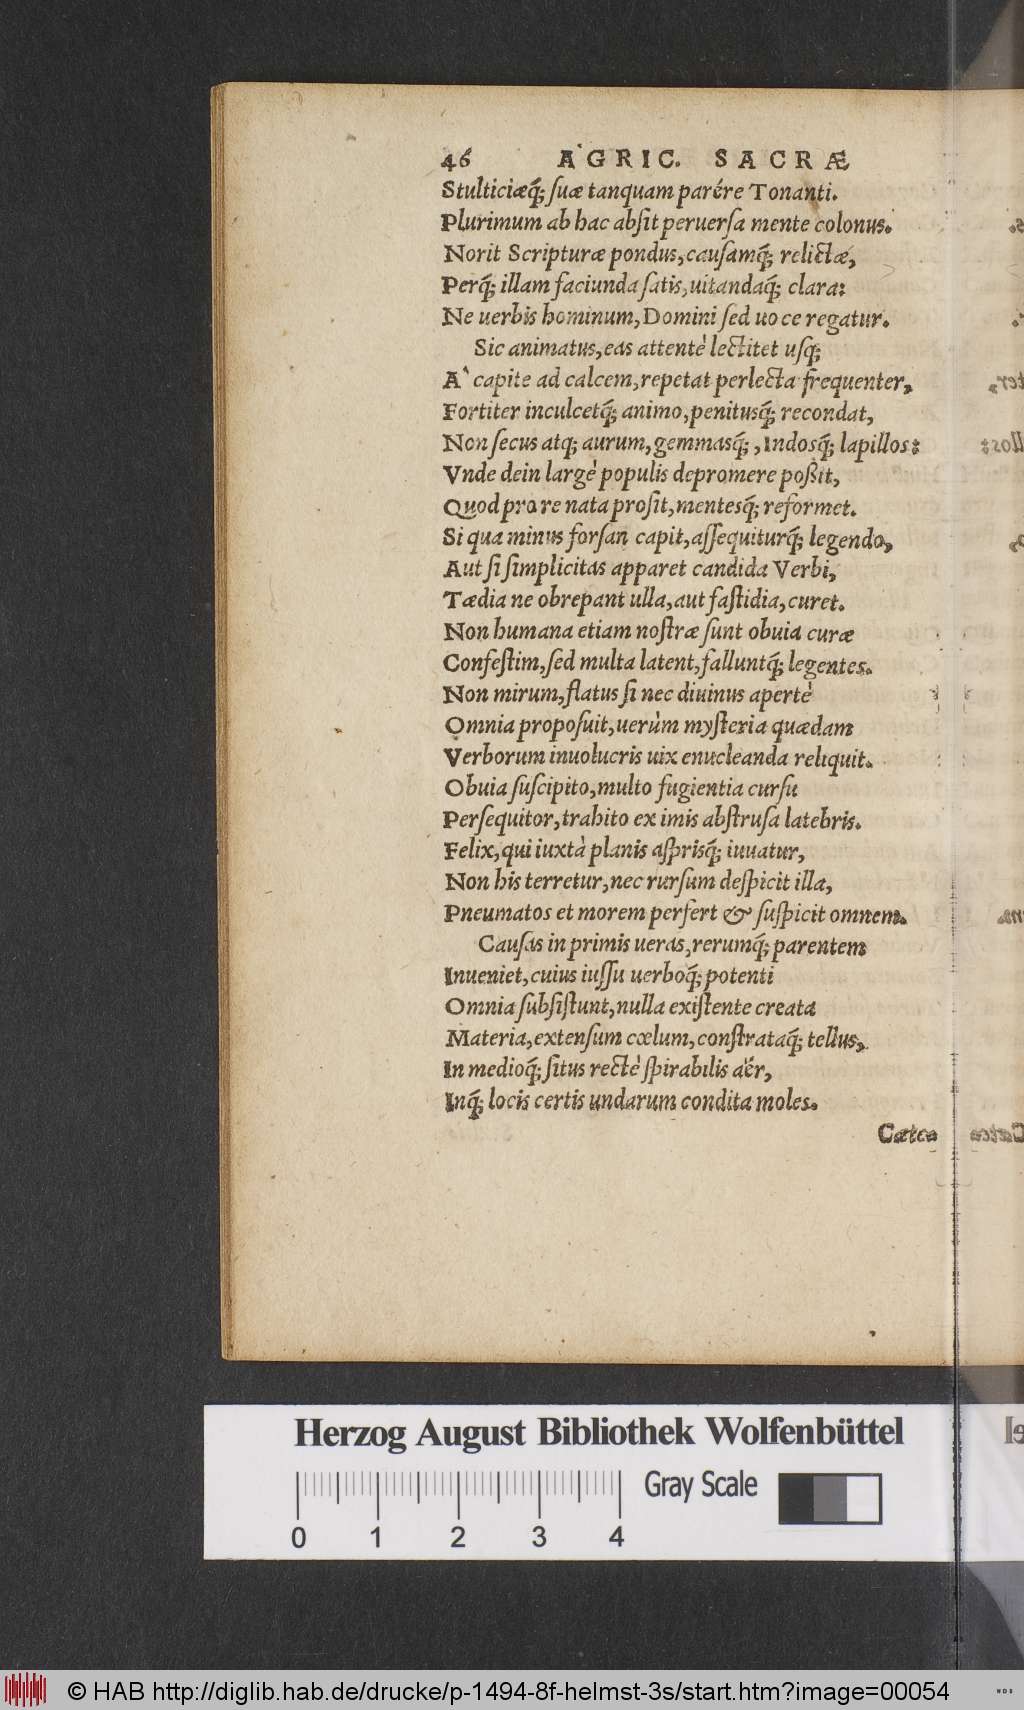 46 AGRIC. SACRÆ
Stulticiæq́; ſuæ tanquam parére Tonanti.
Plurimum ab hac abſit peruerſa mente colonus.
Norit Scripturæ pondus, cauſamq́; relictæ,
Perq́; illam faciunda ſatis, uitandaq́; clara:
Ne uerbis hominum, Domini ſed uoce regatur.
Sic animatus, eas attentè lectitet uſq;
A` capite ad calcem, repetat perlecta frequenter,
Fortiter inculcetq́; animo, penitusq́; recondat,
Non ſecus atq; aurum, gemmasq́;, Indosq́; lapillos:
Vnde dein largè populis depromere poßit,
Quod pro re nata proſit, mentesq́; reformet.
Si qua minus forſan capit, aſſequiturq́; legendo,
Aut ſi ſimplicitas apparet candida Verbi,
Tædia ne obrepant ulla, aut faſtidia, curet.
Non humana etiam noſtræ ſunt obuia curæ
Confeſtim, ſed multa latent, falluntq́; legentes.
Non mirum, flatus ſi nec diuinus apertè
Omnia propoſuit, uerùm myſteria quædam
Verborum inuolucris uix enucleanda reliquit.
Obuia ſuſcipito, multo fugientia curſu
Perſequitor, trahito ex imis abſtruſa latebris.
Felix, qui iuxtà planis aſprisq́; iuuatur,
Non his terretur, nec rurſum deſpicit illa,
Pneumatos et morem perfert & ſuſpicit omnem.
Cauſas in primis ueras, rerumq́; parentem
Inueniet, cuius iuſſu uerboq́; potenti
Omnia ſubſiſtunt, nulla exiſtente creata
Materia, extenſum cœlum, conſtrataq́; tellus,
In medioq́; ſitus rectè ſpirabilis aër,
Inq́; locis certis undarum condita moles.
Cætea
Herzog August Bibliothek Wolfenbüttel
Gray Scale
0 1 2 3 4
© HAB http://diglib.hab.de/drucke/p-1494-8f-helmst-3s/start.htm?image=00054